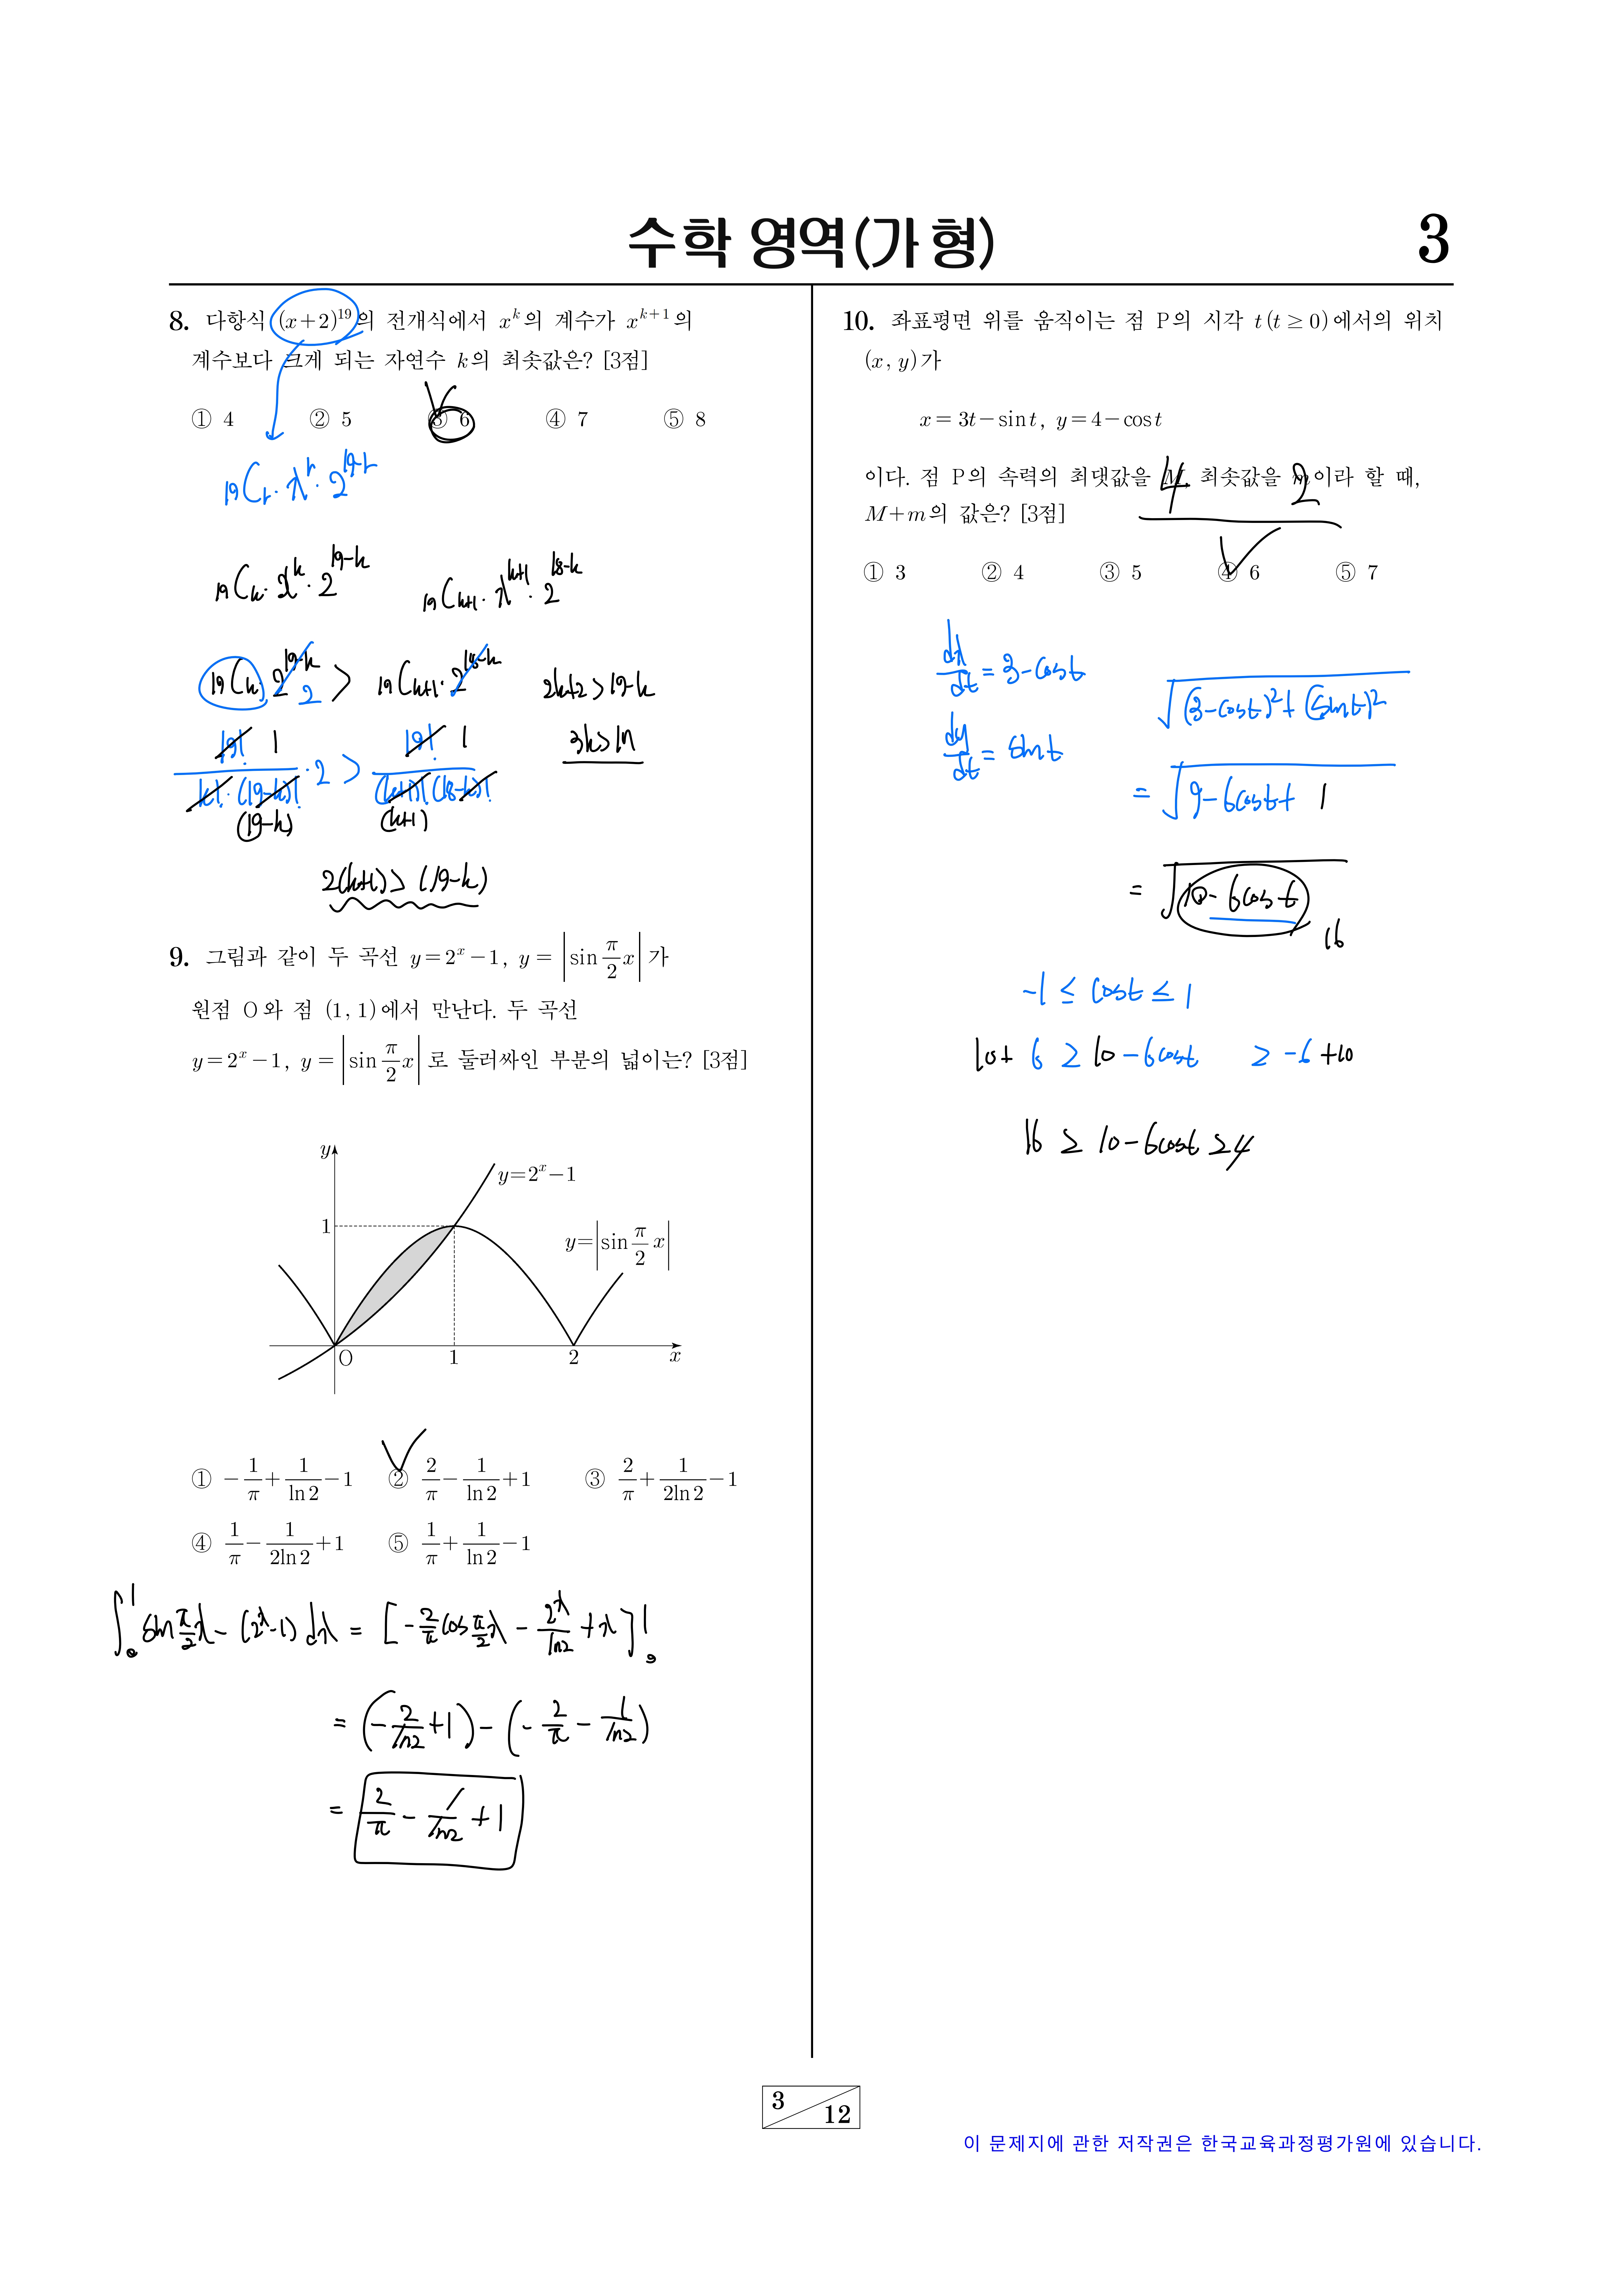 수학 영역(가 형)
3
8. 다항식 (x+2)^19의 전개식에서 x^k의 계수가 x^{k+1}의
계수보다 크게 되는 자연수 k의 최솟값은? [3점]
① 4 ② 5 ③ 6 ④ 7 ⑤ 8
19Cr · x^r · 2^{19-r}
19Ck · x^k · 2^{19-k}
19Ck+1 · x^{k+1} · 2^{18-k}
19Ck · 2^{19-k} 2 > 19Ck+1 · 2^{18-k}
2k+2 > 19-k
19! 1 / k! · (19-k)! · 2 > 19! 1 / (k+1)! (18-k)!
3k > 17
(19-k) (k+1)
2(k+1) > (19-k)
9. 그림과 같이 두 곡선 y=2^x-1, y=|sin π/2 x|가
원점 O와 점 (1, 1)에서 만난다. 두 곡선
y=2^x-1, y=|sin π/2 x|로 둘러싸인 부분의 넓이는? [3점]
y
y=2^x-1
1
y=|sin π/2 x|
O 1 2 x
① -1/π+1/ln2-1 ② 2/π-1/ln2+1 ③ 2/π+1/2ln2-1
④ 1/π-1/2ln2+1 ⑤ 1/π+1/ln2-1
∫_0^1 sin π/2 x - (2^x-1) dx = [-2/π cos π/2 x - 2^x/ln2 + x]_0^1
= (-2/ln2 + 1) - (-2/π - 1/ln2)
= 2/π - 1/ln2 + 1
10. 좌표평면 위를 움직이는 점 P의 시각 t(t ≥ 0)에서의 위치
(x, y)가
x=3t-sin t, y=4-cos t
이다. 점 P의 속력의 최댓값을 M, 최솟값을 m이라 할 때,
4 2
M+m의 값은? [3점]
① 3 ② 4 ③ 5 ④ 6 ⑤ 7
dx/dt = 3-cost
√(3-cost)^2+(sint)^2
dy/dt = sint
= √9-6cost+1
= √10-6cost
16
-1 ≤ cost ≤ 1
10+6 ≥ 10-6cost ≥ -6+10
16 ≥ 10-6cost ≥ 4
3 12
이 문제지에 관한 저작권은 한국교육과정평가원에 있습니다.